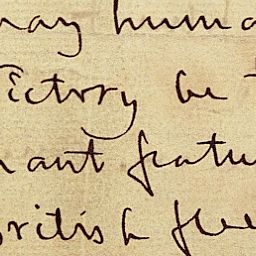 may huma
Victory be t
nant featu
British flee